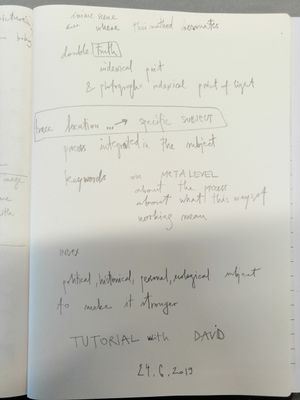 where this method resonates
double Truth
indexical point
& photograph indexical point of light
trace location ...→ specific SUBJECT
process integrated in the subject
keywords on META LEVEL
about the process
about what this ways of
working mean
INDEX
political, historical, personal, ecological subject
to make it stronger
TUTORIAL with DAVID
24.6.2019